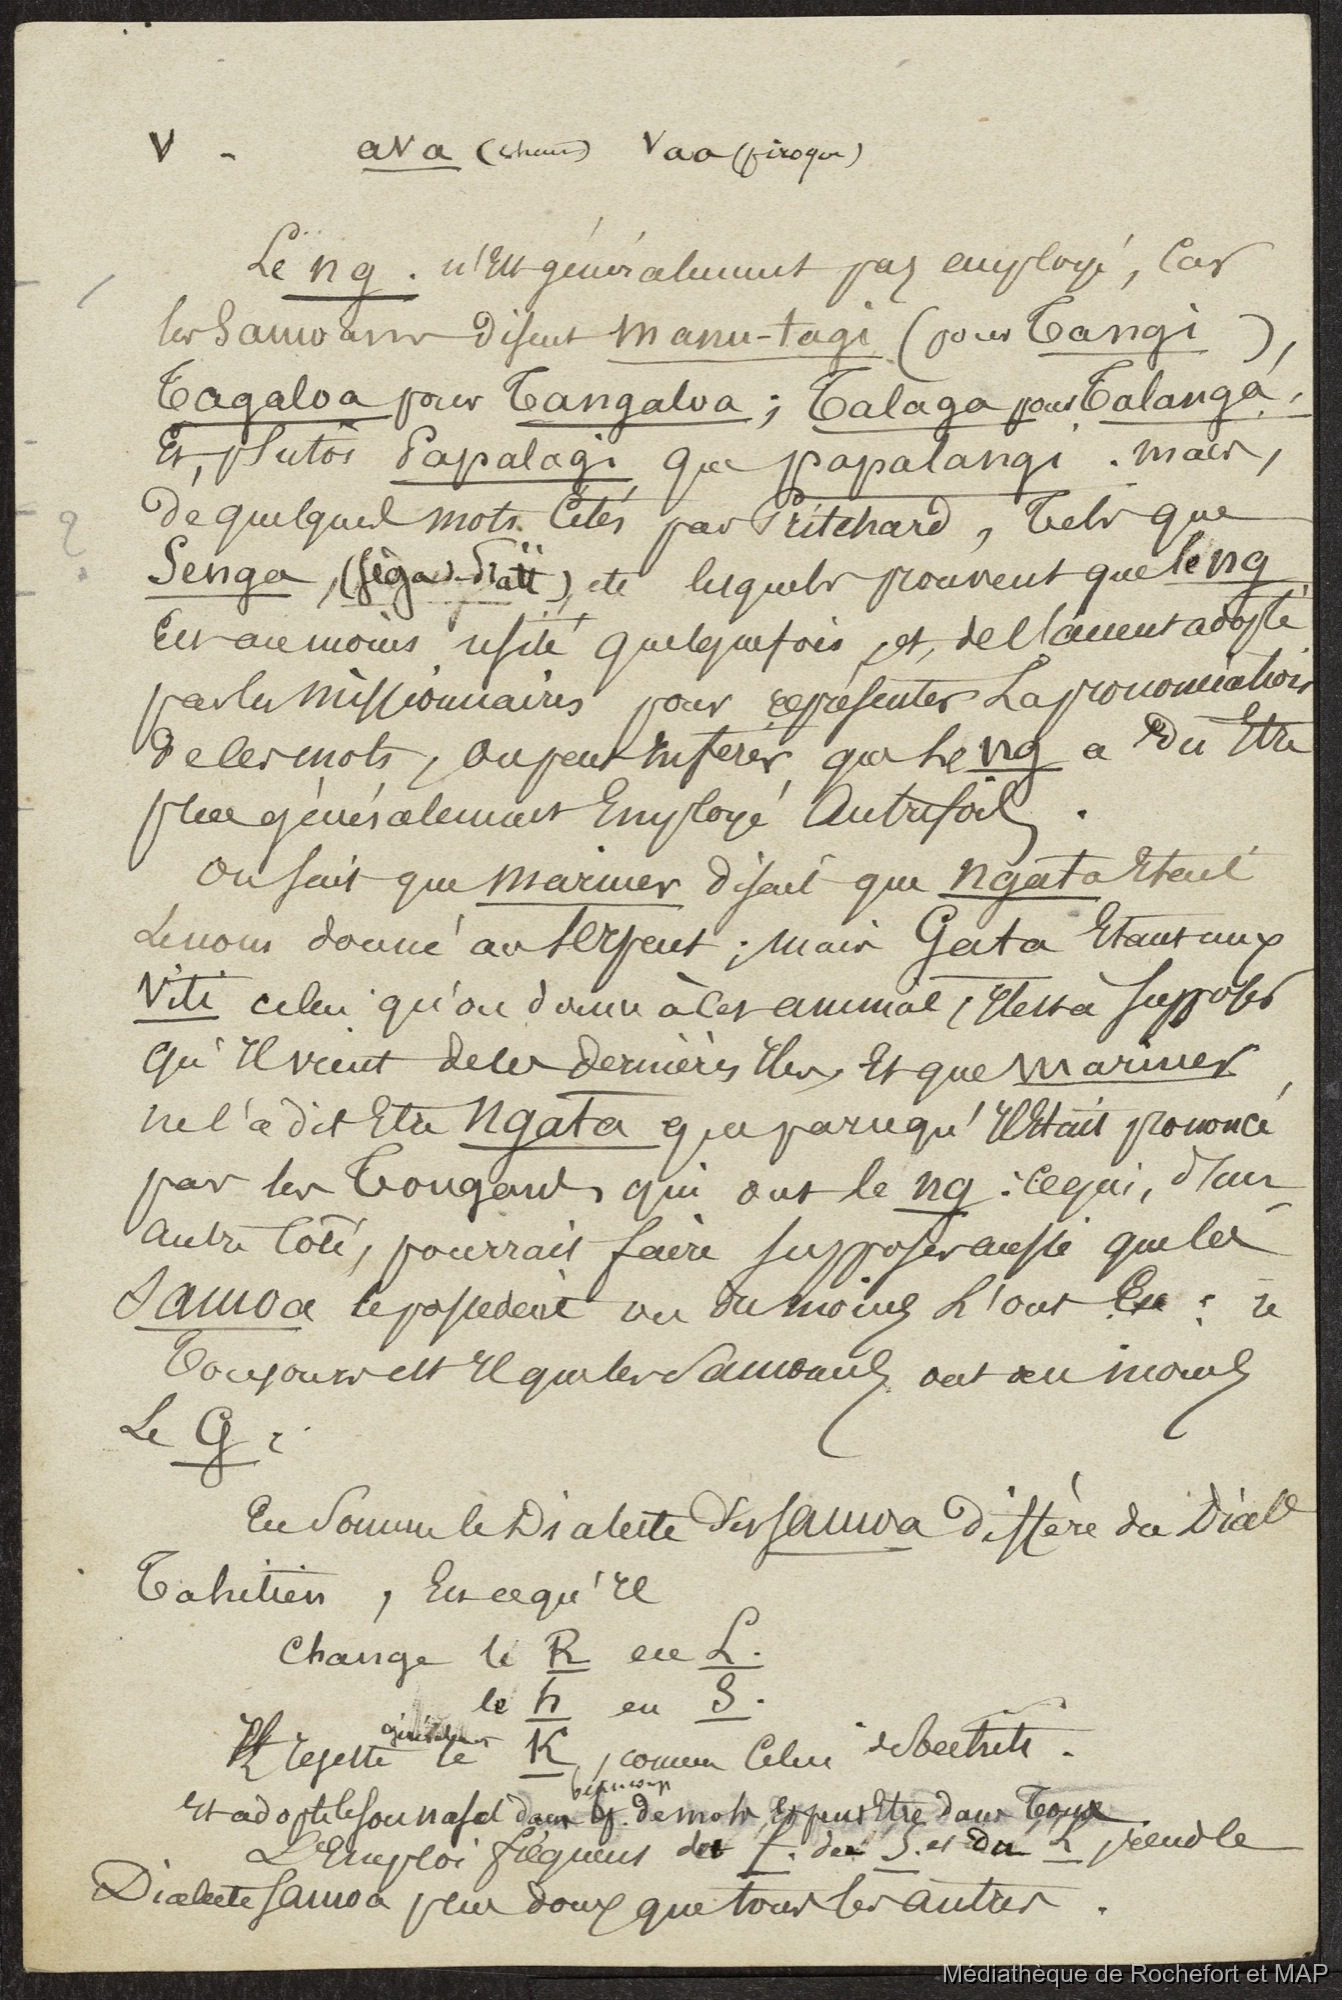 V - ava (chenal) Vaa (pirogue)
Le ng. n'Est généralement pas employé, Car
les Samoans Disent manu-tagi (pour Tangi),
Tagaloa pour Tangaloa; Talaga pour Talanga,
Et, plutôt Papalagi que papalangi. mais,
De quelques mots Cités par Pritchard, Tels que
Senga, ( ) etc lesquels prouvent que le ng
Est au moins usité quelquefois, et, de l'accent adopté
par les Missionnaires pour représenter La prononciation
De ces mots, on peut inférer que Le ng a Dû Etre
plus généralement Employé Autrefois.
On sait que mariner Disait que ngata Etait
Le nom donné au serpent; mais Gata Etant aux
Viti celui qu'on donne à cet animal, Il est à supposer
qu'Il vient de ces dernières Iles, Et que mariner
ne l'a dit Etre Ngata que parcequ'Il Etait prononcé
par les Tongans, qui ont le ng: ce qui, d'un
autre Côté, pourrait faire supposer aussi que les
Samoa le possèdent ou du moins L'ont Eu:
Toujours est Il que les Samoans ont au moins
Le G:
En Somme le Dialecte des Samoa Diffère du Dial
Tahitien, En ce qu'Il
Change le R en L.
le h en S.
Il rejette généralement le K, comme Celui de Taïti.
Et adopte le son nasal dans beaucoup de mots, Et peut Etre dans Tous
L'Emploi fréquent des f. des S. et du L rend le
Dialecte Samoa plus doux que tous les autres.
Médiathèque de Rochefort et MAP